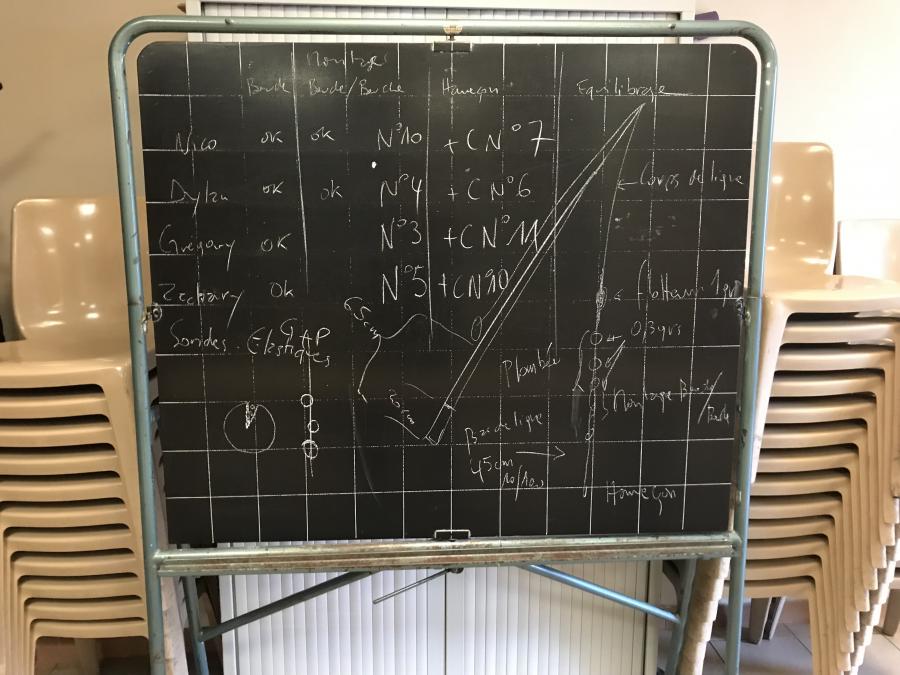 Montages
Boucle Boucle/Boucle Hameçon Equilibrage
Nico ok ok N°10 + C N°7
Dylan ok ok N°4 + C N°6
Corps de ligne
Gregory OK N°3 + C N°11
Zechary Ok N°5 + C N°10
flotteur 1gr
65cm
0,3grs
Sondes Elastiques
GAP
Plombée
Montage Boucle/
Boucle
20cm
Bas de ligne
45cm
10/100
Hameçon